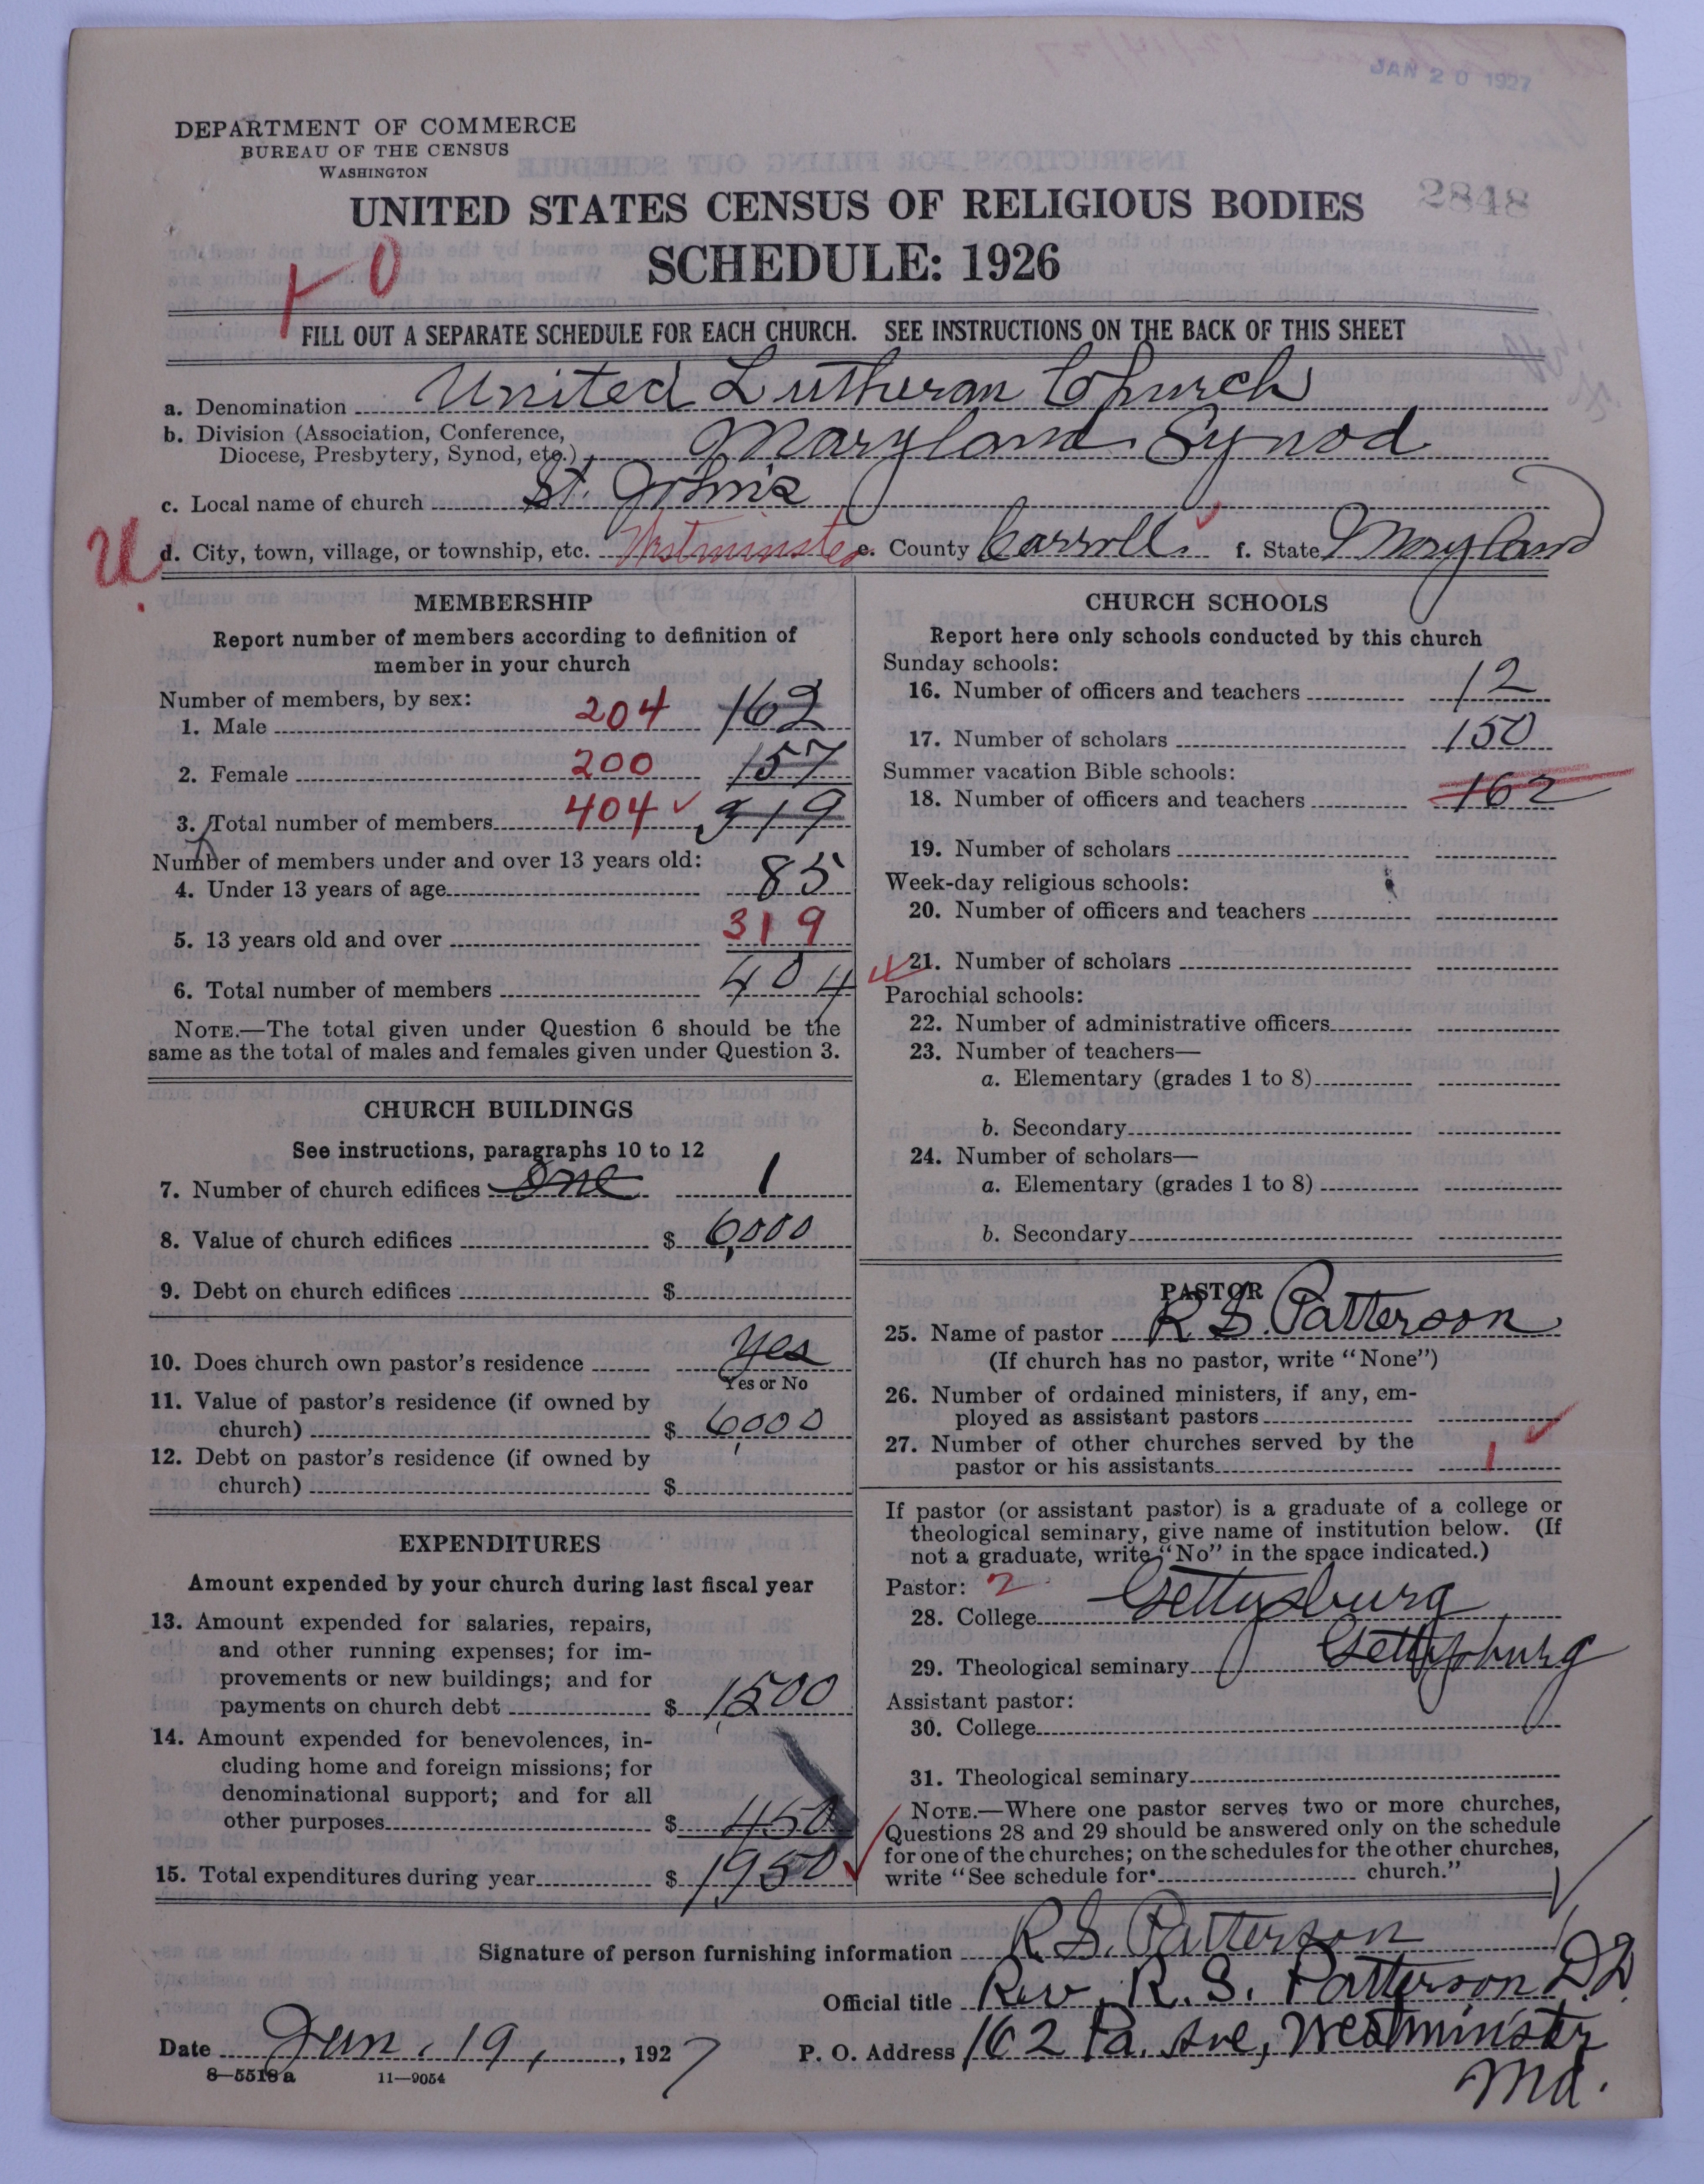 JAN 20 1927
DEPARTMENT OF COMMERCE
BUREAU OF THE CENSUS
WASHINGTON
2848
UNITED STATES CENSUS OF RELIGIOUS BODIES
SCHEDULE: 1926
FILL OUT A SEPARATE SCHEDULE FOR EACH CHURCH. SEE INSTRUCTIONS ON THE BACK OF THIS SHEET
a. Denomination United Lutheran Church
b. Division (Association, Conference,
Diocese, Presbytery, Synod, etc.) Maryland Synod
c. Local name of church St. John's
U. d. City, town, village, or township, etc. Westminster e. County Carroll. f. State Maryland
MEMBERSHIP
Report number of members according to definition of
member in your church
Number of members, by sex:
1. Male 204 162
2. Female 200 157
3. Total number of members 404 ✓ 319
Number of members under and over 13 years old:
4. Under 13 years of age 85
5. 13 years old and over 319
6. Total number of members 404
NOTE.—The total given under Question 6 should be the
same as the total of males and females given under Question 3.
CHURCH BUILDINGS
See instructions, paragraphs 10 to 12
7. Number of church edifices One 1
8. Value of church edifices $ 6,000
9. Debt on church edifices $
10. Does church own pastor's residence Yes
Yes or No
11. Value of pastor's residence (if owned by
church) $ 6,000
12. Debt on pastor's residence (if owned by
church) $
EXPENDITURES
Amount expended by your church during last fiscal year
13. Amount expended for salaries, repairs,
and other running expenses; for im-
provements or new buildings; and for
payments on church debt $ 1,500
14. Amount expended for benevolences, in-
cluding home and foreign missions; for
denominational support; and for all
other purposes $ 450
15. Total expenditures during year $ 1,950 ✓
CHURCH SCHOOLS
Report here only schools conducted by this church
Sunday schools:
16. Number of officers and teachers 12
17. Number of scholars 150
Summer vacation Bible schools:
18. Number of officers and teachers 162
19. Number of scholars
Week-day religious schools:
20. Number of officers and teachers
21. Number of scholars
Parochial schools:
22. Number of administrative officers
23. Number of teachers—
a. Elementary (grades 1 to 8)
b. Secondary
24. Number of scholars—
a. Elementary (grades 1 to 8)
b. Secondary
PASTOR
25. Name of pastor R S. Patterson
(If church has no pastor, write "None")
26. Number of ordained ministers, if any, em-
ployed as assistant pastors
27. Number of other churches served by the
pastor or his assistants 1 ✓
If pastor (or assistant pastor) is a graduate of a college or
theological seminary, give name of institution below. (If
not a graduate, write "No" in the space indicated.)
Pastor: 2
28. College Gettysburg
29. Theological seminary Gettysburg
Assistant pastor:
30. College
31. Theological seminary
NOTE.—Where one pastor serves two or more churches,
Questions 28 and 29 should be answered only on the schedule
for one of the churches; on the schedules for the other churches,
write "See schedule for church."
Signature of person furnishing information R. S. Patterson
Official title Rev. R. S. Patterson D.D.
Date Jan. 19, 1927
P. O. Address 162 Pa. Ave, Westminster
Md.
8—5518 a 11—9054